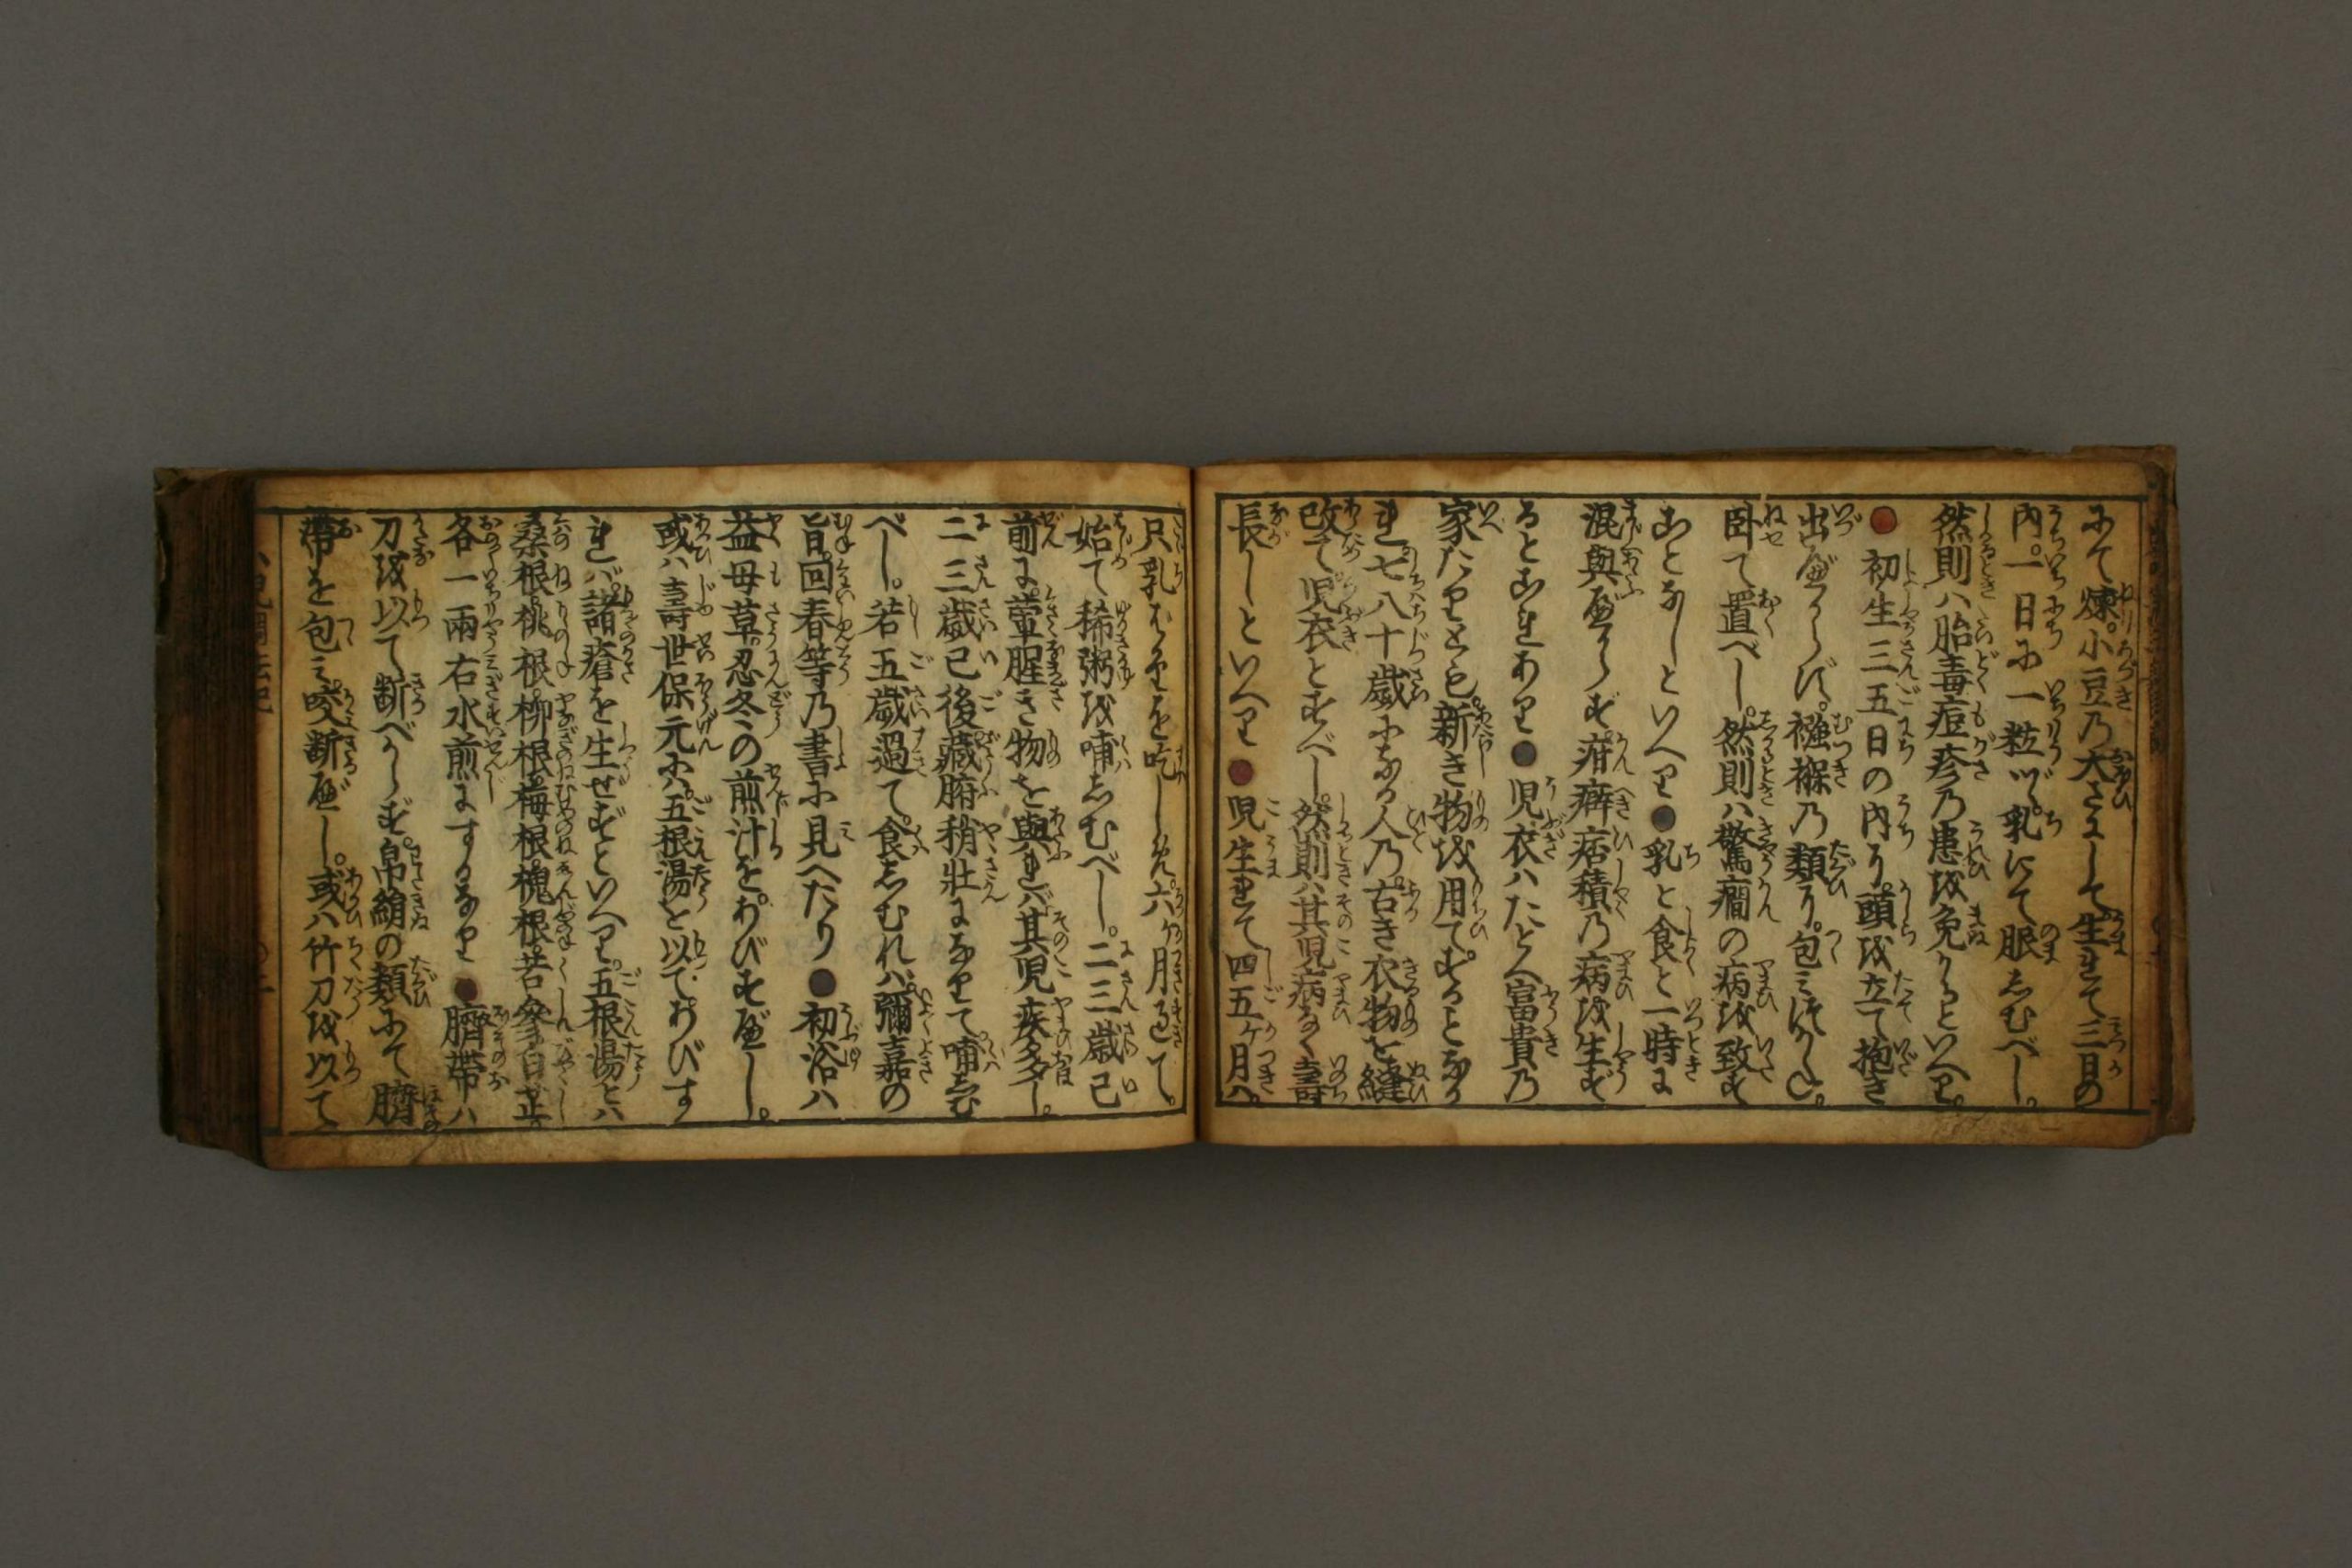 にて煉。小豆の大さにして生れて三日の
内。一日に一粒ヅヽ乳にて服しむべし。
然則ハ胎毒痘疹の患を免かるといへり。
●初生三五日の内ハ。頭を立て抱き
出べからず。襁褓の類に。包ミ
臥て置べし。然則ハ驚癇の病を致す
ことなしといへり●乳と食と一時に
混與べからず。疳癖痞積の病を生ず
ることこれあり●児衣ハたとへ富貴の
家たりとも。新き物を用てすることなかれ
れ。七八十歳になる人の。古き衣物を縫
改て児衣とすべし。然則ハ其児病なく壽
長しといへり●児生れて四五ヶ月ハ。
只乳ばかりを吃しめ。六ヶ月過て。
始て稀粥を哺しむべし。二三歳已
前に。葷腥き物を與れバ。其児疾多し。
二三歳已後。藏腑稍壮になりて哺しむ
べし。若五歳過て。食しむれハ。彌嘉の
旨。回春等の書に見へたり●初浴ハ
益母草。忍冬の煎汁を。あびすべし。
或ハ壽世保元に。五根湯を以て。あびす
れバ。諸瘡を生ぜずといへり。五根湯とハ
桑根。桃根。柳根。梅根。槐根。苦參。白芷。
各一兩右水煎にするなり●臍帯ハ
刀を以て断べからず。帛絹の類にて臍
帯を包ミ。咬断べし。或ハ竹刀を以て